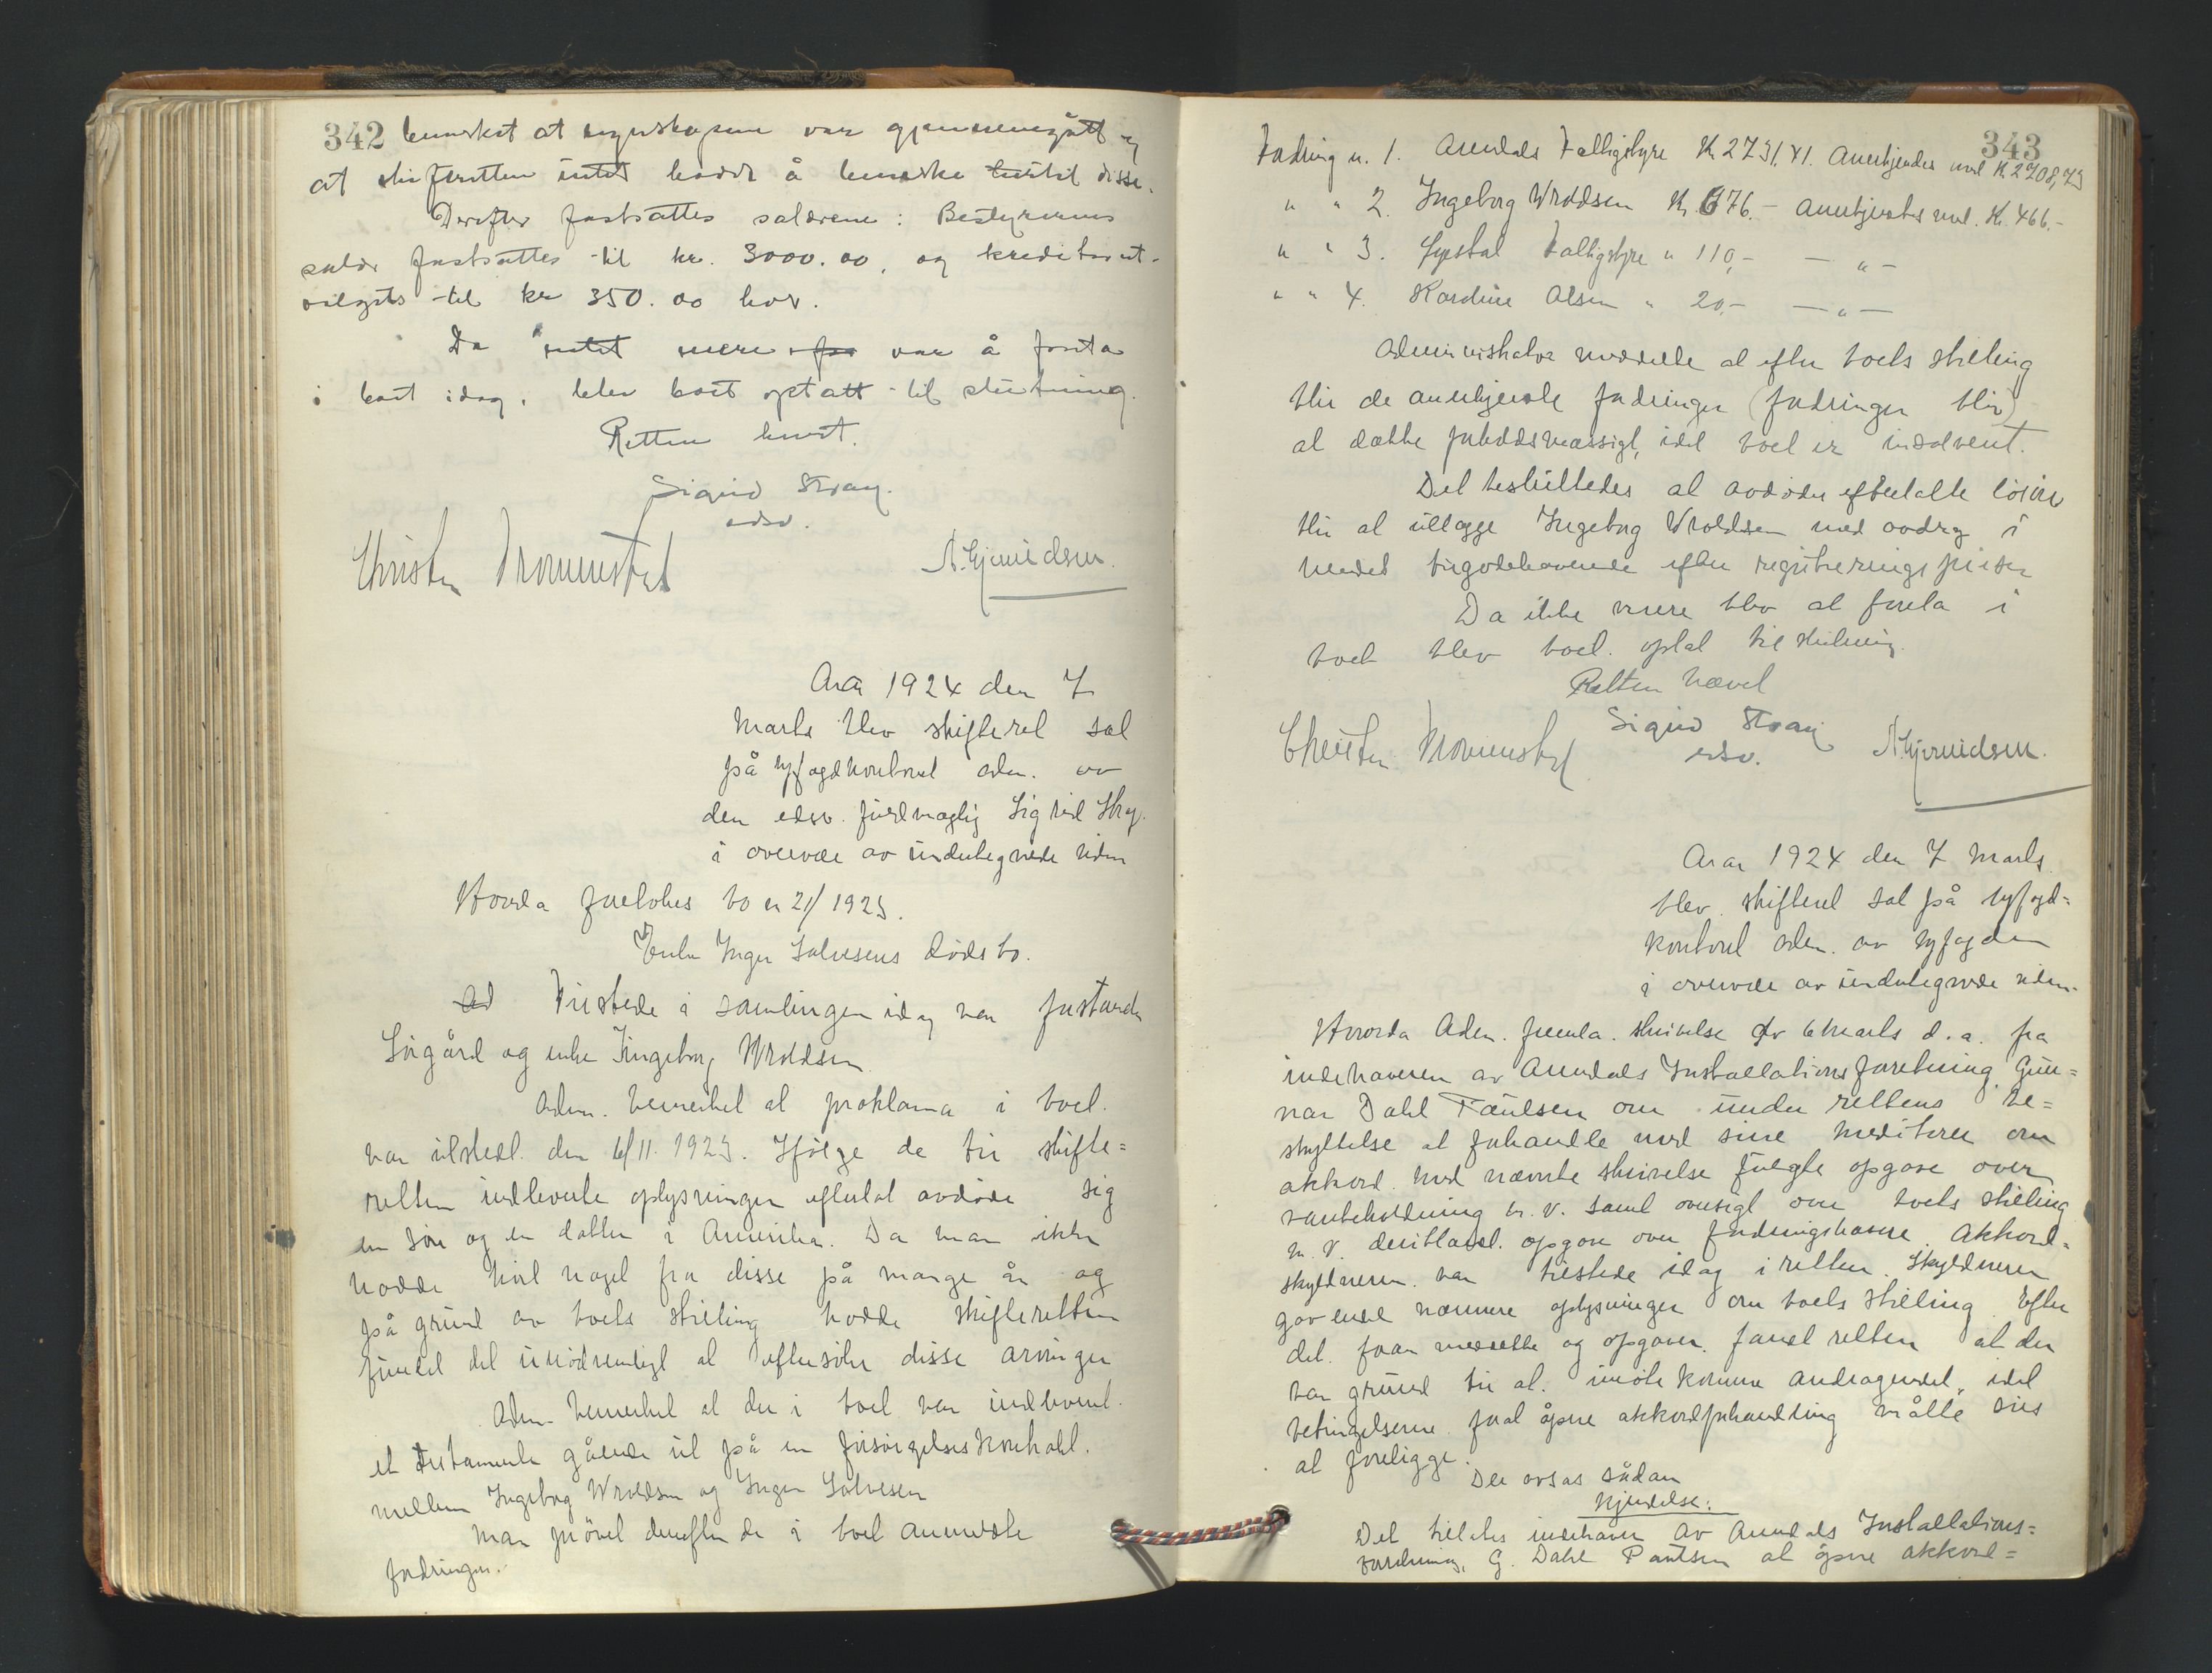 342 bemerket at regnskapene var gjennemgått og
at skifteretten intet hadde å bemerke til disse.
Derefter fastsattes salærene: Bestyrerens
salær fastsattes til kr. 3000.00, og kreditorut-
valgets til kr 350.00 hver.
Da intet mere var å foreta
i boet idag, blev boet optatt til slutning.
Retten hævet.
Sigrid Stray.
edsv.
Christen Drommestad A. Gjermundsen.
Aar 1924 den 7
marts blev skifteret sat
på byfogdkontoret adm. av
den edsv. fuldmægtig Sigrid Stray
i overvær av undertegnede vidner
Hvorda foretokes bo nr 21/1923.
Enke Inger Salvesens dødsbo.
Ad Tilstede i samlingen idag var forstander
Sørgård og enke Ingeborg Wroldsen
Adm. bemerket at proklama i boet
var utstedt den 6/11. 1923. Ifølge de til skifte=
retten indleverte oplysninger efterlot avdøde sig
en søn og en datter i Amerika. Da man ikke
hadde hørt noget fra disse på mange år og
på grund av boets stilling hadde skifteretten
fundet det unødvendigt at eftersøke disse arvinger
Adm. bemerket at der i boet var indlevert
et testamente gående ut på en forsørgelseskontrakt
mellem Ingeborg Wroldsen og Inger Salvesen
Man prøvet derefter de i boet anmeldte
fordringer.
343
Fordring n. 1. Arendals Fattigstyre Kr 2731,41. Anerkjendes med Kr 2708,73
" " 2. Ingeborg Wroldsen Kr. 676.- Anerkjendtes med. Kr. 466.-
" " 3. Fattigstyre " 110,- - " -
" " 4. Karoline Olsen " 20,- - " -
Administrator meddelte at efter boets stilling
blir de anerkjendte fordringer (fordringer blir)
at dække forholdsmæssigt, idet boet er insolvent.
Det besluttedes at avdødes efterlatte løsøre
blir at utlægge Ingeborg Wroldsen med avdrag i
hendes tilgodehavende efter registreringsprisen
Da ikke mere blev at foreta i
boet blev boet optat til slutning
Retten hævet
Christen Drommestad Sigrid Stray A. Gjermundsen.
edsv.
Aar 1924 den 7 marts
blev skifteret sat på byfogd=
kontoret adm. av byfogden
i overvær av undertegnede vidner
Hvorda Adm. fremla skrivelse av 6 marts d.a. fra
indehaveren av Arendals Installationsforretning Gun=
nar Dahl Paulsen om under rettens be=
skyttelse at forhandle med sine kreditorer om
akkord. Med nævnte skrivelse fulgte opgave over
varebeholdning m.v. samt oversigt over boets stilling
m.v. deriblandt opgave over fordringshavere. Akkord=
skyldneren var tilstede idag i retten. Skyldneren
gav endel nærmere oplysninger om boets stilling. Efter
det saaledes meddelte og opgaver fandt retten at der
var grund til at imøtekomme andragendet, idet
betingelserne for at åpne akkordforhandling måtte sies
at foreligge.
Der avsas sådan
kjendelse:
Det tillates indehaver av Arendals Installations=
forretning, G. Dahl Paulsen at åpne akkord=